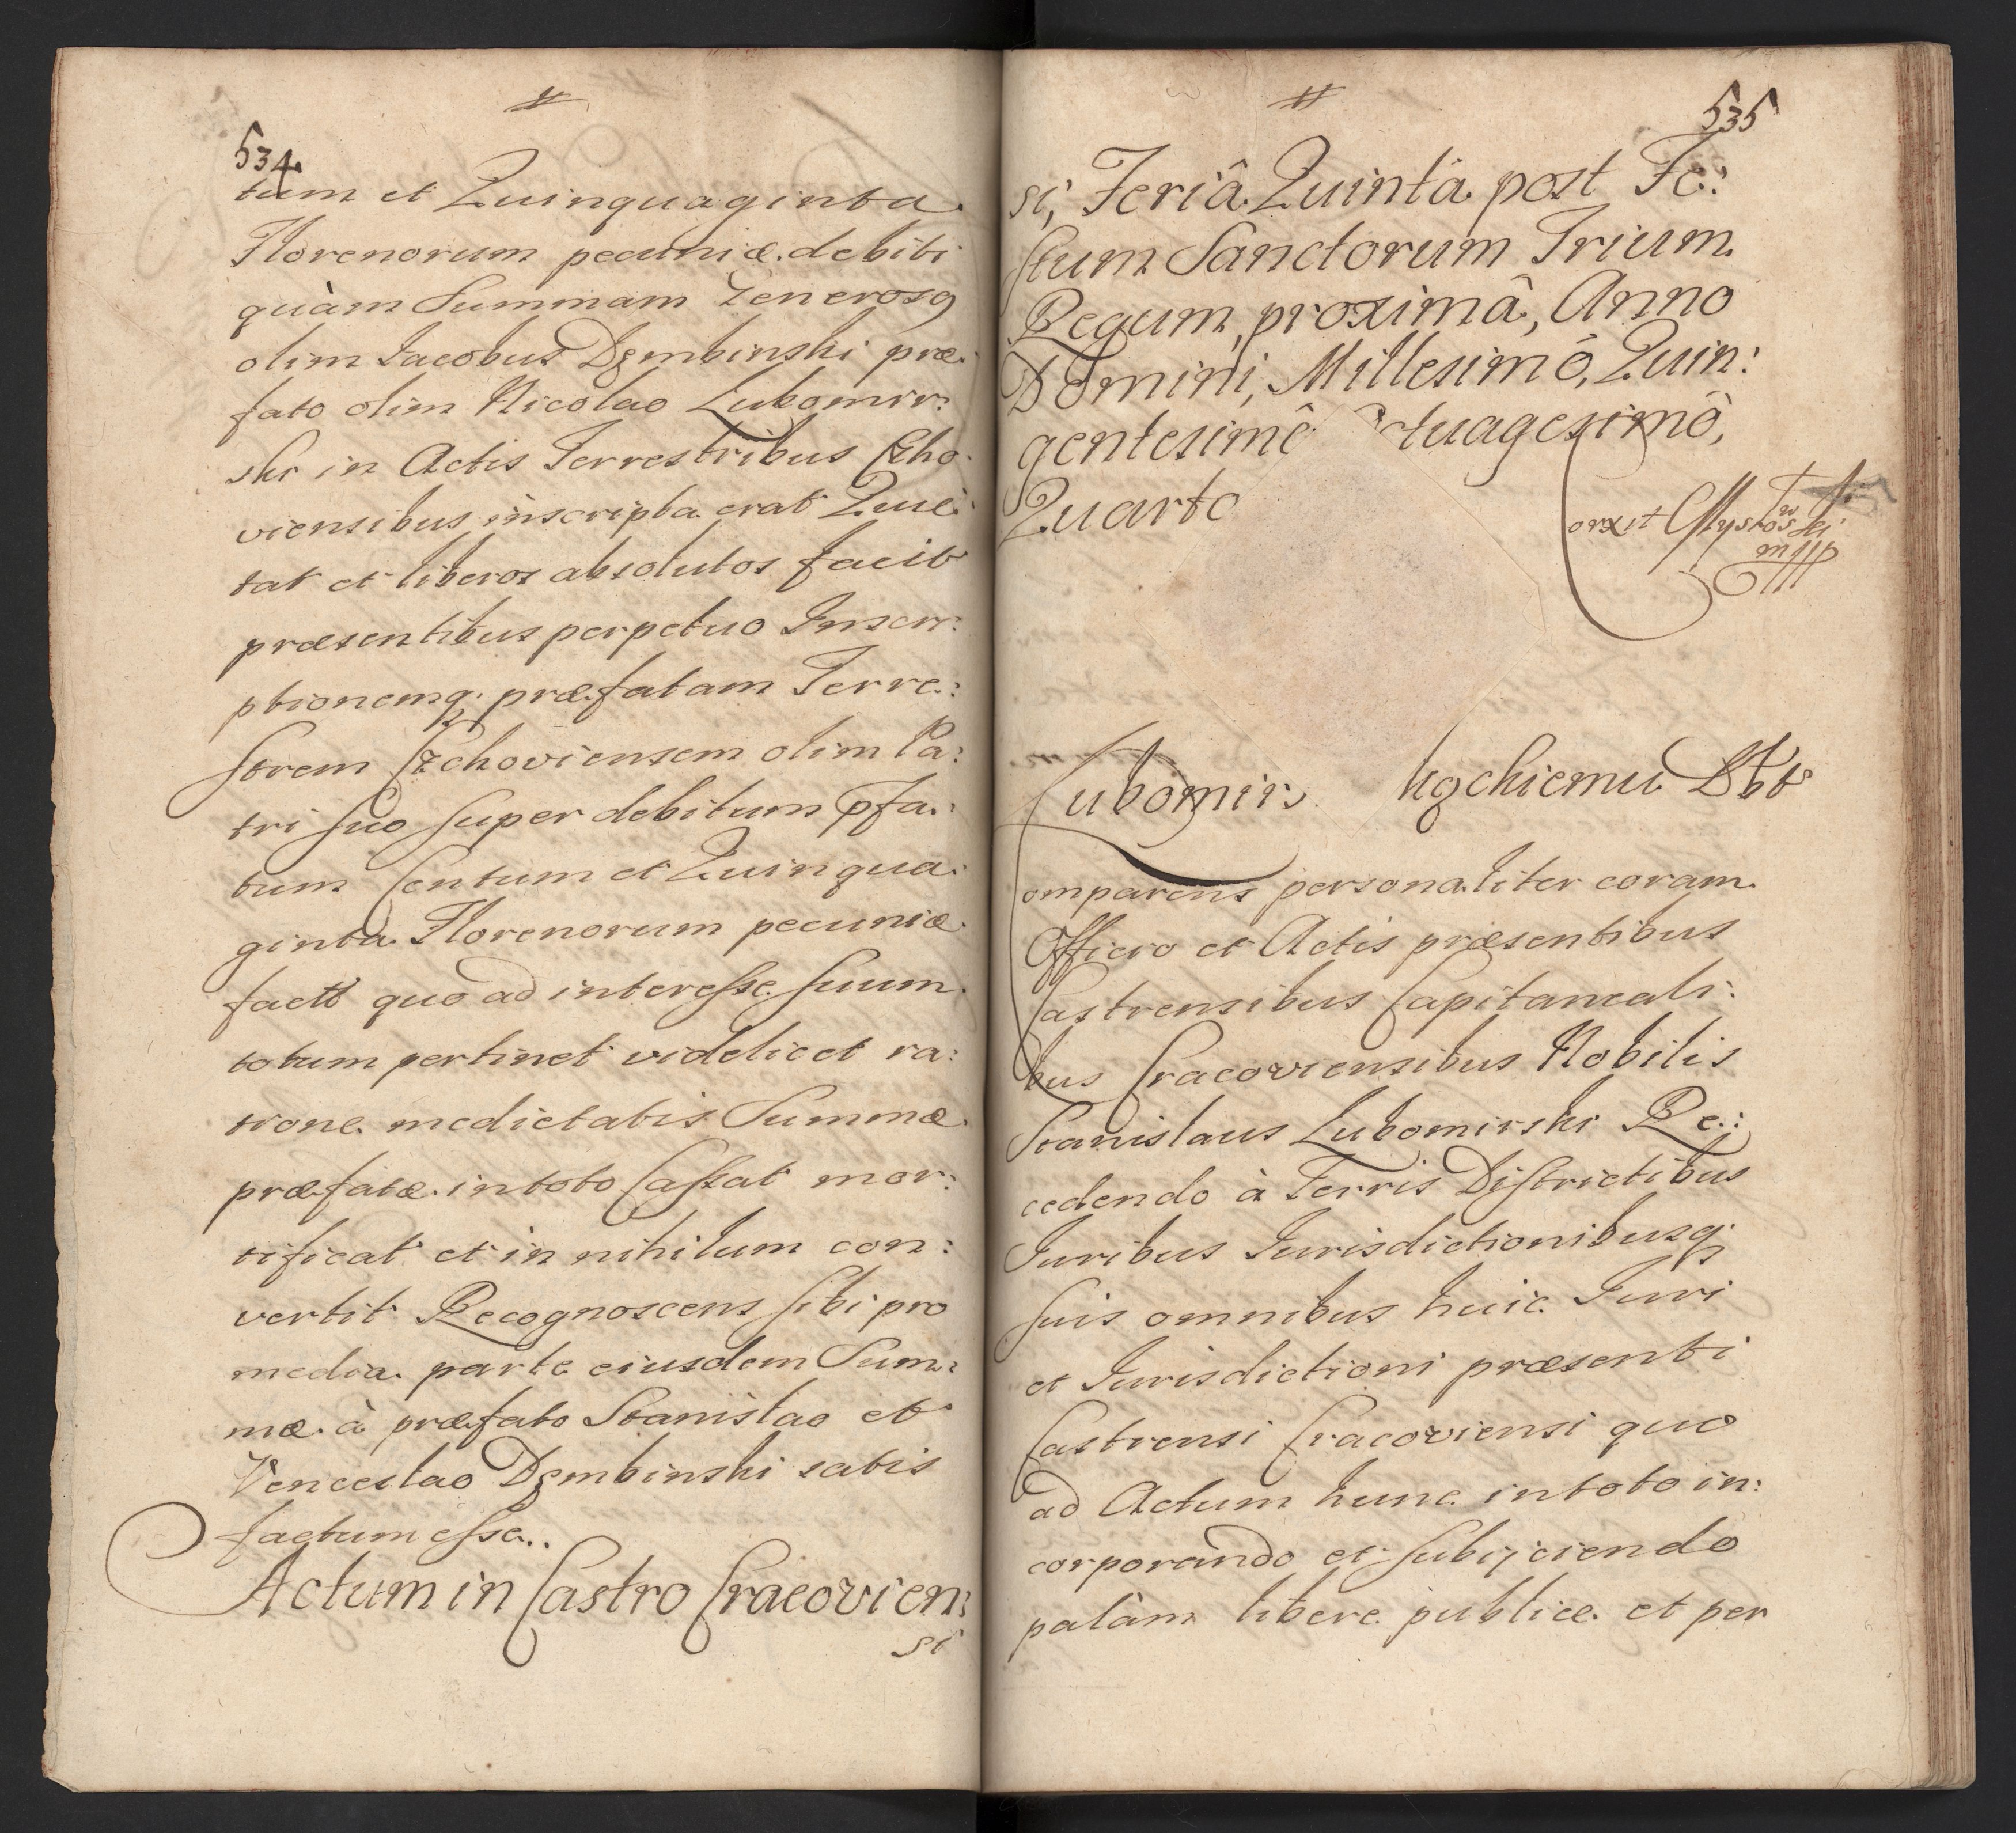 534.
tum et Quinquaginta
Florenorum pecuniæ debiti
quàm Summam Generosq
olim Iacobus Dęmbinski præ:
fato olim Nicolao Lubomir:
ski in Actis Terrestribus Czcho:
viensibus inscripta erat Quie:
tat et liberos absolutos facit
præsentibus perpetuo Inscri:
ptionemq; præfatam Terre:
strem Czchoviensem olim Pa:
tri suo super debitum pfa:
tum Centum et Quinqua:
ginta Florenorum pecuniæ
factō quo ad interesse suum
totum pertinet videlicet ra:
tione medietatis Summæ
præfatæ in toto Cassat mor:
tificat et in nihilum con:
vertit Recognoscens sibi pro
media parte eiusdem Sum:
mæ à præfato Stanislao et
Venceslao Dęmbinski satis
factum esse..
Actum in Castro Cracovien:
si
535
si, Feriâ Quintâ post Fe:
stum Sanctorum Trium
Regum, proximâ, Anno
Domini, Millesimô, Quin:
gentesimô tuagesimô,
Quarto
Lubomirs Ligęckiemu Qtt
Comparens personaliter coram
Officio et Actis præsentibus
Castrensibus Capitaneali:
bus Cracoviensibus Nobilis
Stanislaus Lubomirski Re:
cedendo à Terris Districtibus
Iuribus Iurisdictionibusq;
suis omnibus huic Iuri
et Iurisdictioni præsenti
Castrensi Cracoviensi quo
ad Actum hunc in toto in:
corporando et subijciendo
palàm libere publice et per